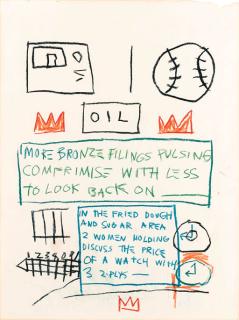 OIL
MORE BRONZE FILINGS PULSING
COMPRIMISE WITH LESS
TO LOOK BACK ON
IN THE FRIED DOUGH
AND SUGAR AREA
2 WOMEN HOLDING
DISCUSS THE PRICE
OF A WATCH WITH
3 2-PLYS —